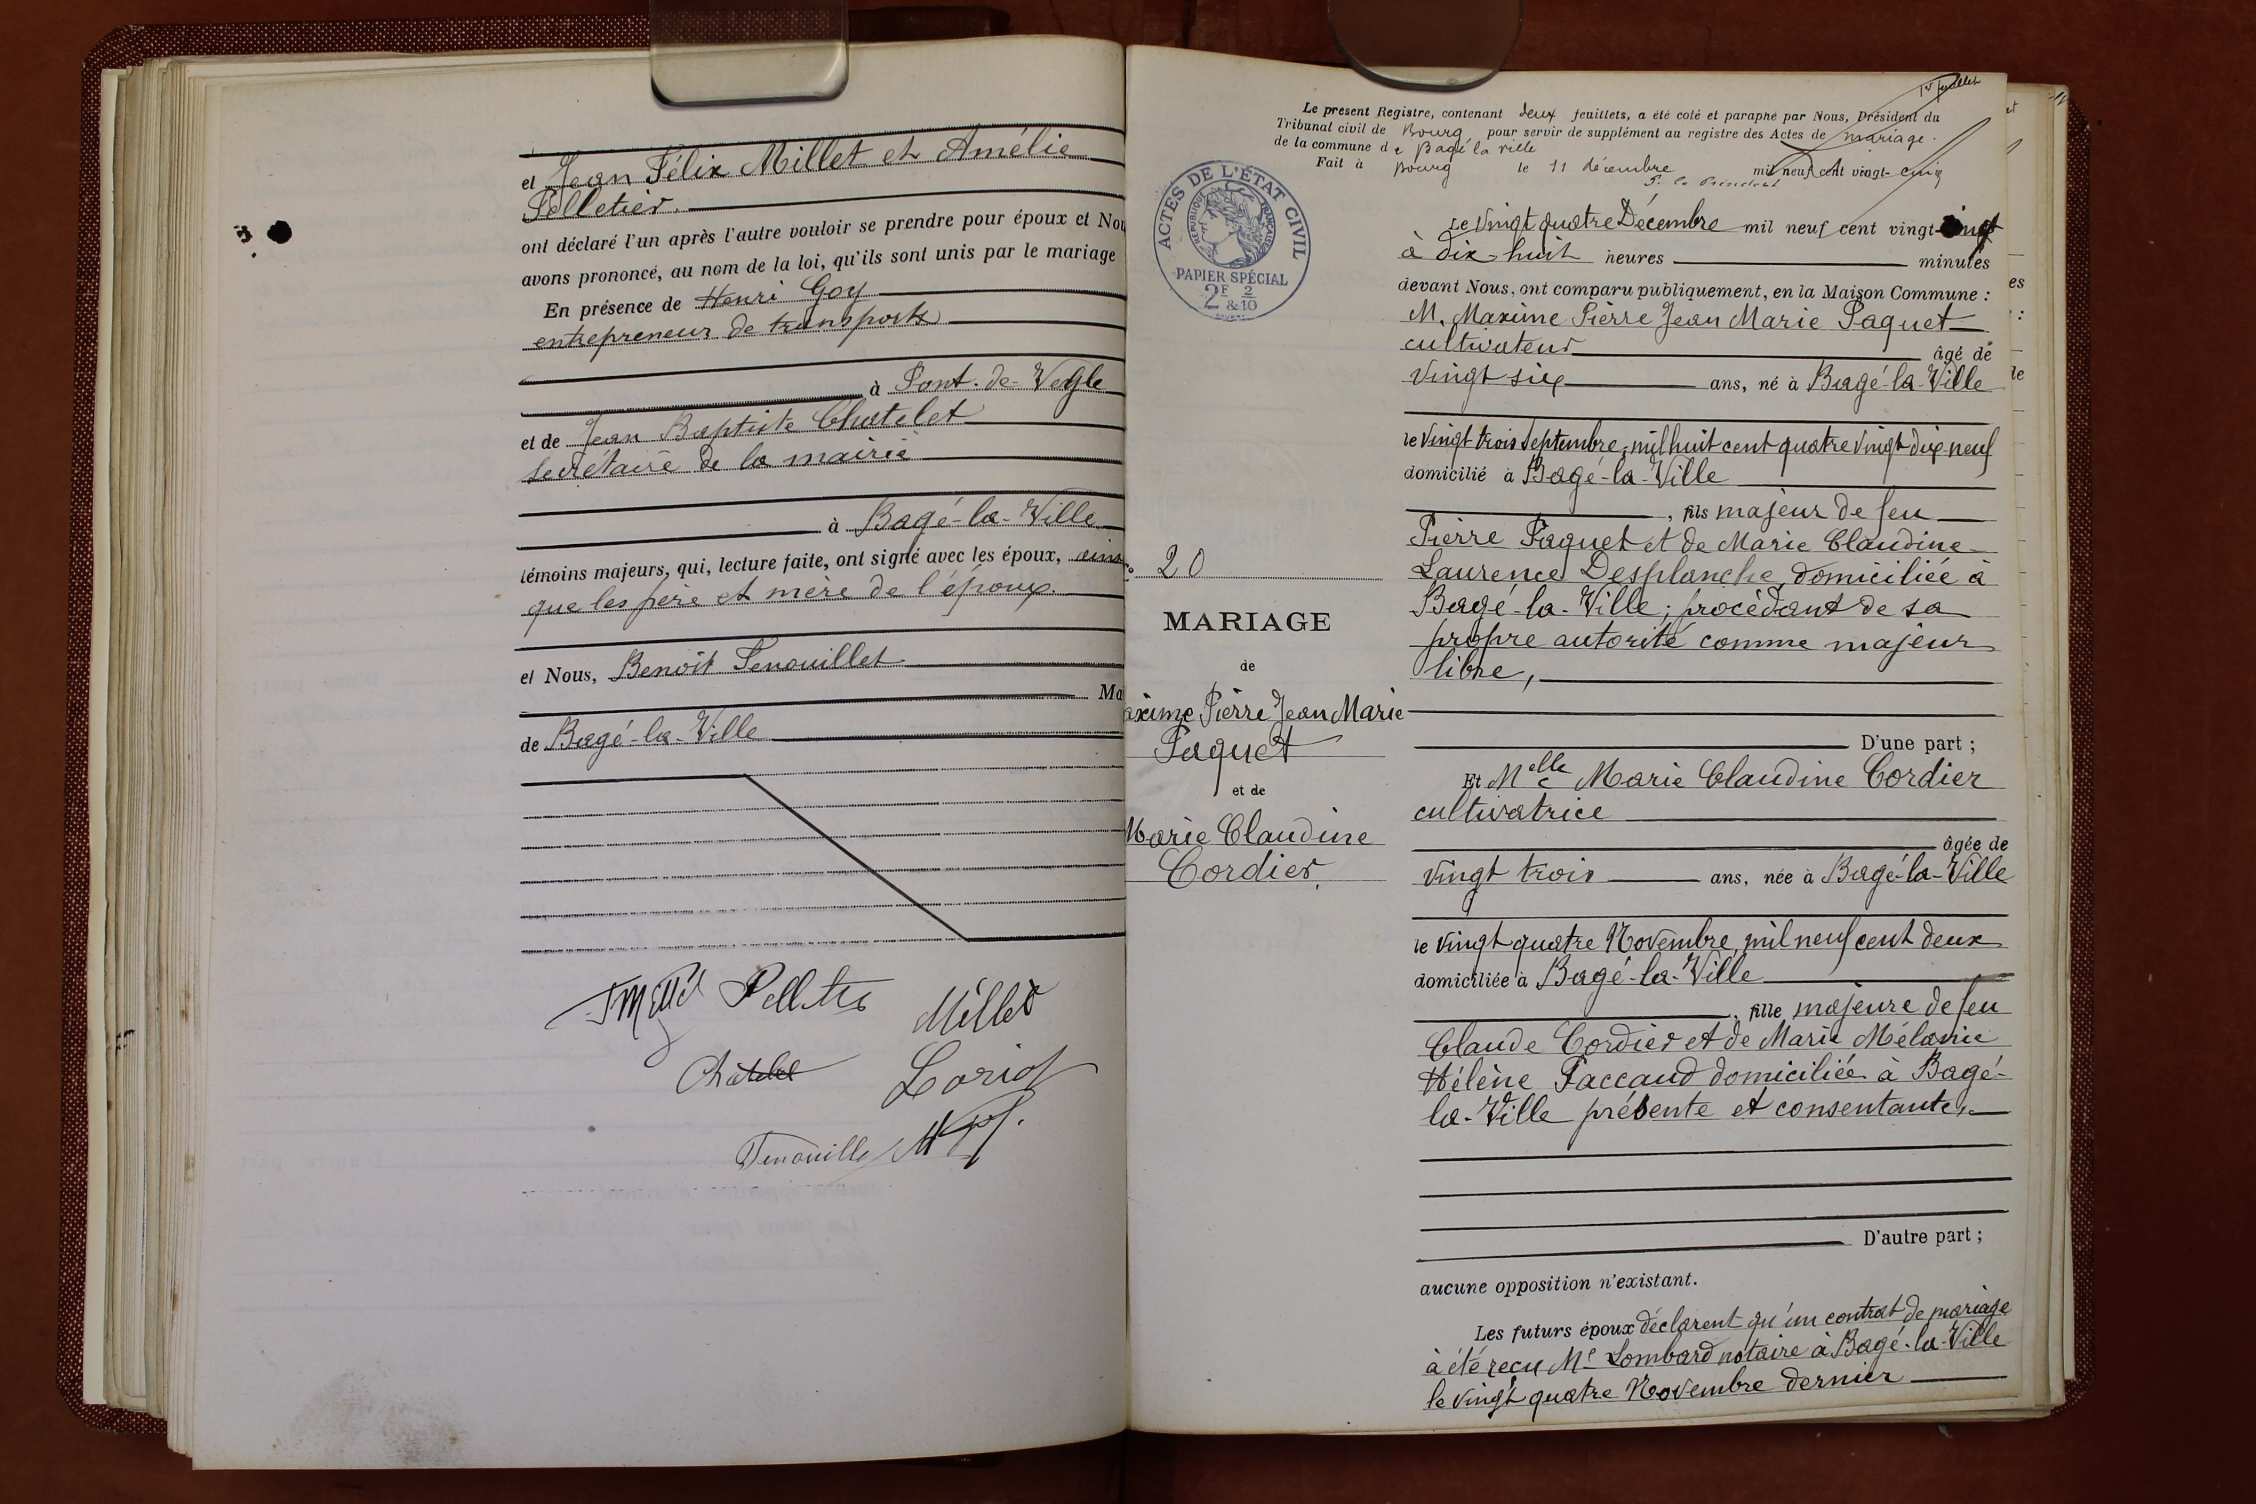 et Jean Félix Millet et Amélie
Pelletier.
ont déclaré l'un après l'autre vouloir se prendre pour époux et Nou
avons prononcé, au nom de la loi, qu'ils sont unis par le mariage
En présence de Henri Goy
entrepreneur de transports
à Pont-de-Veyle
et de Jean Baptiste Chatelet
secrétaire de la mairie
à Bagé-la-Ville
témoins majeurs, qui, lecture faite, ont signé avec les époux, ains
que les père et mère de l'époux.
et Nous, Benoît Penouillet
Ma
de Bagé-la-Ville
Millet
Chatelet
Loriot
1er feuillet
Le présent Registre, contenant deux feuillets, a été coté et paraphé par Nous, Président du
Tribunal civil de Bourg pour servir de supplément au registre des Actes de mariage.
de la commune de Bagé la ville
Fait à Bourg le 11 décembre mil neuf cent vingt-cinq
P. le Président
ACTES DE L'ÉTAT CIVIL
RÉPUBLIQUE FRANÇAISE
PAPIER SPÉCIAL
2F & 2/10
No 20
MARIAGE
de
axime Pierre Jean Marie
Paquet
et de
Marie Claudine
Cordier.
Le vingt quatre Décembre mil neuf cent vingt-cinq
à dix-huit heures minutes
devant Nous, ont comparu publiquement, en la Maison Commune :
M. Maxime Pierre Jean Marie Paquet
cultivateur âgé de
vingt six ans, né à Bagé-la-Ville
le vingt trois septembre, mil huit cent quatre vingt dix-neuf
domicilié à Bagé-la-Ville
, fils majeur de feu
Pierre Paquet et de Marie Claudine
Laurence Desplanche, domiciliée à
Bagé-la-Ville ; procédant de sa
propre autorité comme majeur
libre,
D'une part ;
Et Melle Marie Claudine Cordier
cultivatrice
âgée de
vingt trois ans, née à Bagé-la-Ville
le vingt quatre Novembre, mil neuf cent deux
domiciliée à Bagé-la-Ville
, fille majeure de feu
Claude Cordier et de Marie Mélanie
Hélène Paccaud domiciliée à Bagé-
la-Ville présente et consentante,
D'autre part ;
aucune opposition n'existant.
Les futurs époux déclarent qu'un contrat de mariage
à été reçu Me Lombard notaire à Bagé-la-Ville
le vingt quatre Novembre dernier